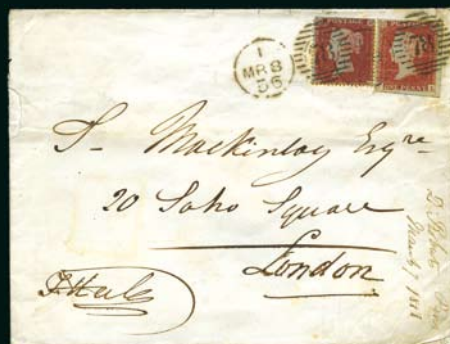 1
MR 8
56
POSTAGE
ONE PENNY
Mackinlay Esqre
20 Soho Square
London
March 7